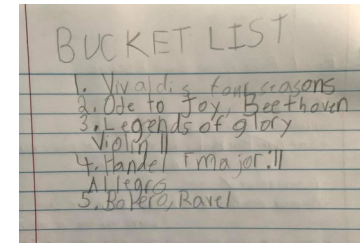 BUCKET LIST
1. Vivaldi s four seasons
2. Ode to Joy, Beethoven
3. Legends of glory
Violin II
4. Handel F major: II
Allegro
5. Bolero, Ravel